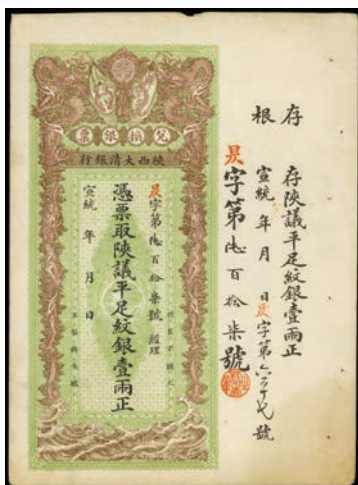 存根
存陝議平足紋銀壹兩正
宣統 年 月 日昃字第六百十七號
昃字第陸百拾柒號
兌換銀票
陝西大清銀行
昃字第陸百拾柒號 經理
憑票取陝議平足紋銀壹兩正
宣統 年 月 日